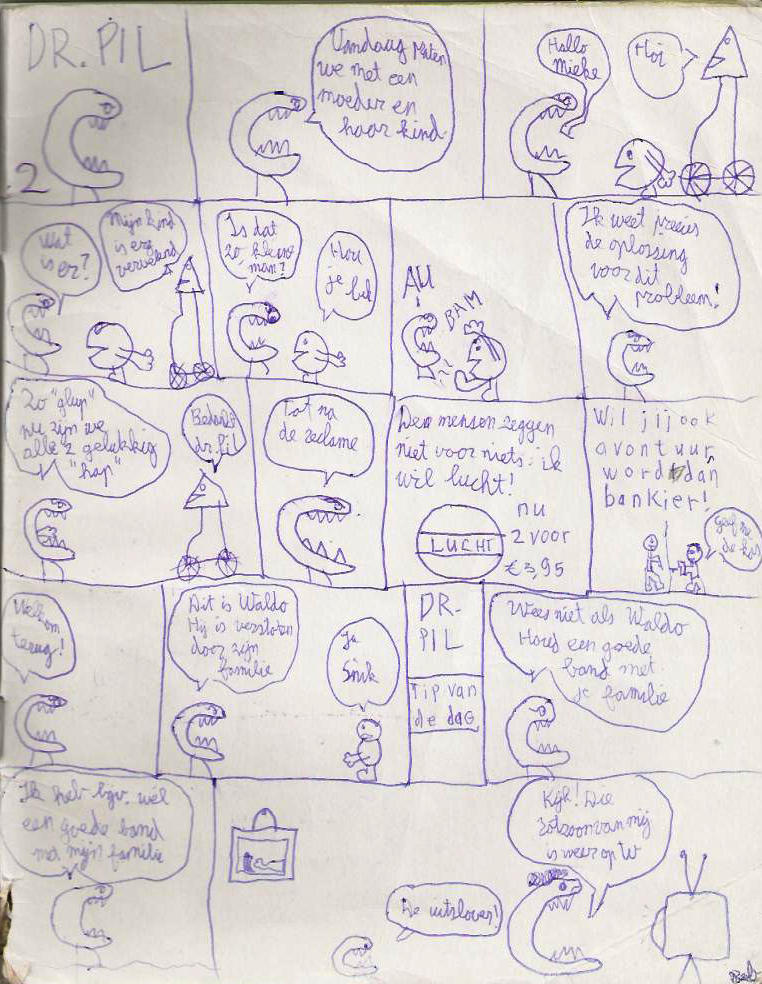 DR. PIL
2
Vandaag praten
we met een
moeder en
haar kind.
Hallo
Mieke
Hoi
Wat
is er?
Mijn kind
is erg
vervelend
Is dat
zo, kleine
man?
Hou
je bek
AU
BAM
Ik weet precies
de oplossing
voor dit
probleem!
Zo "glup"
nu zijn we
alle 2 gelukkig
"hap"
Bedankt
dr. Pil
Tot na
de reclame
Den mensen zeggen
niet voor niets: ik
wil lucht!
LUCHT
nu
2 voor
€3,95
Wil jij ook
avontuur,
word dan
bankier!
Geef me
de kas
Welkom
terug!
Dit is Waldo
Hij is verstoten
door zijn
familie
Ja
Snik
DR.
PIL
Tip van
de dag
Wees niet als Waldo
Houd een goede
band met
je familie
Ik heb bijv. wel
een goede band
met mijn familie
Kijk! Die
rotzoon van mij
is weer op tv
De uitslover!